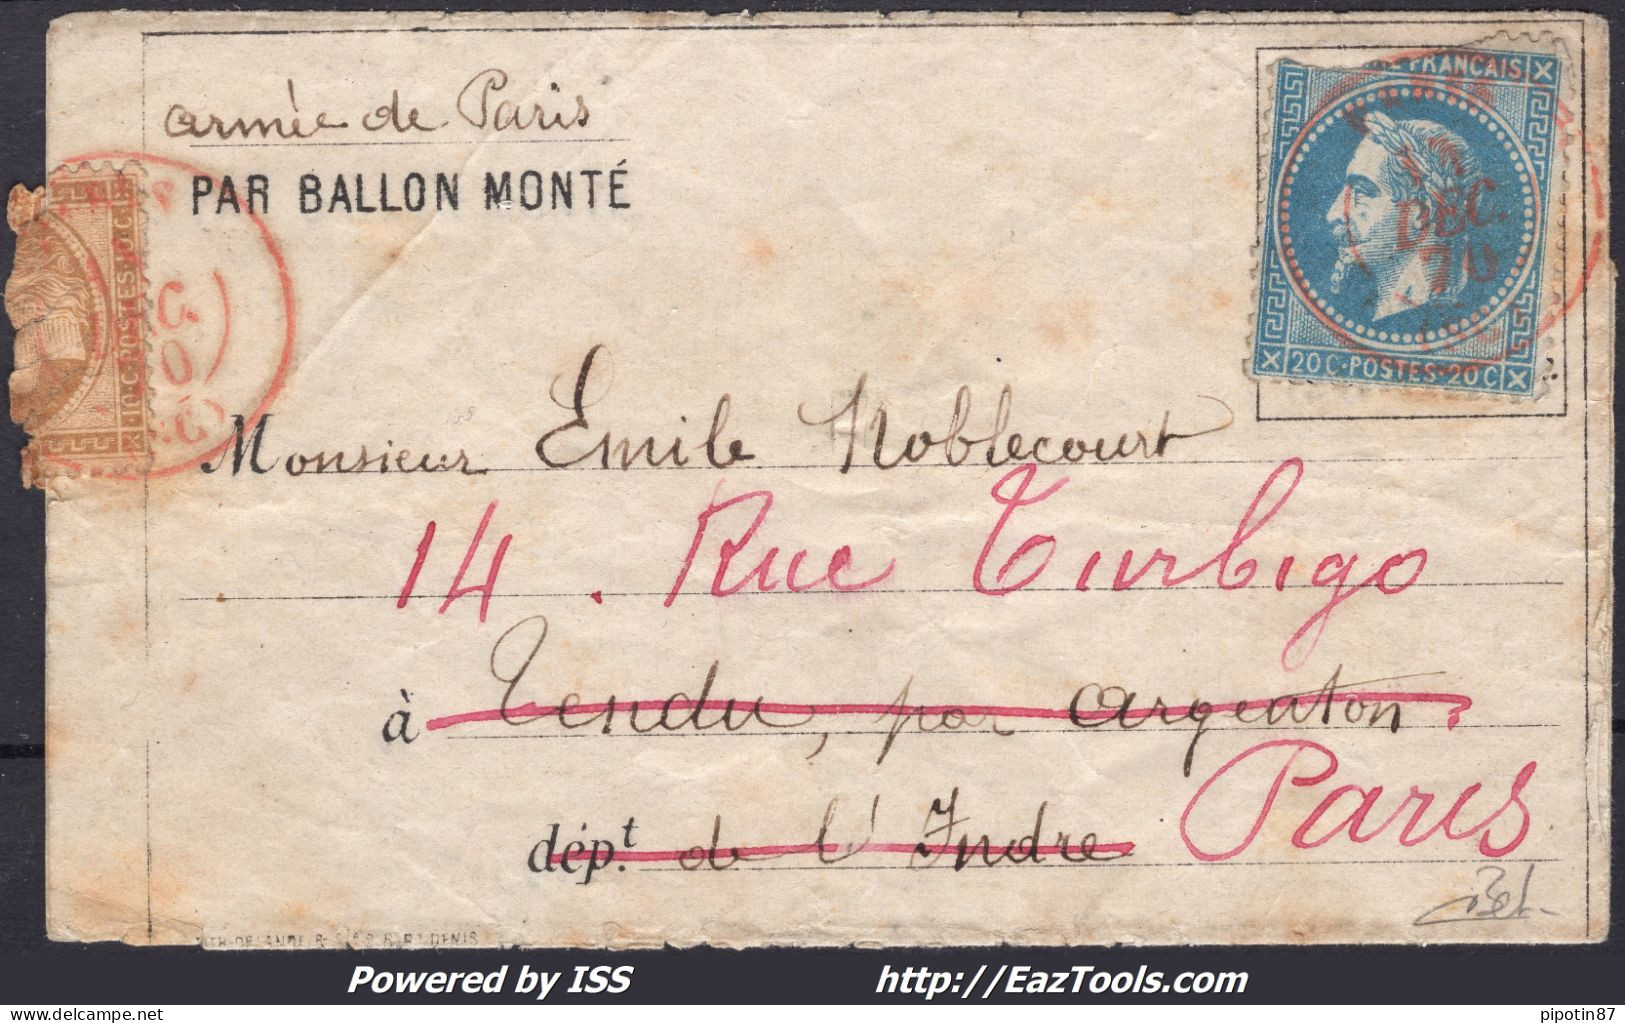 armée de Paris
PAR BALLON MONTÉ
FRANCAIS
20C·POSTES·20C
10·C·POSTES·10·C
DEC.
70
Monsieur Emile Noblecourt
14. Rue Turbigo
à Tendu, par argenton
Paris
dép.t de l'Indre
Powered by ISS http://EazTools.com
delcampe.net pipotin87